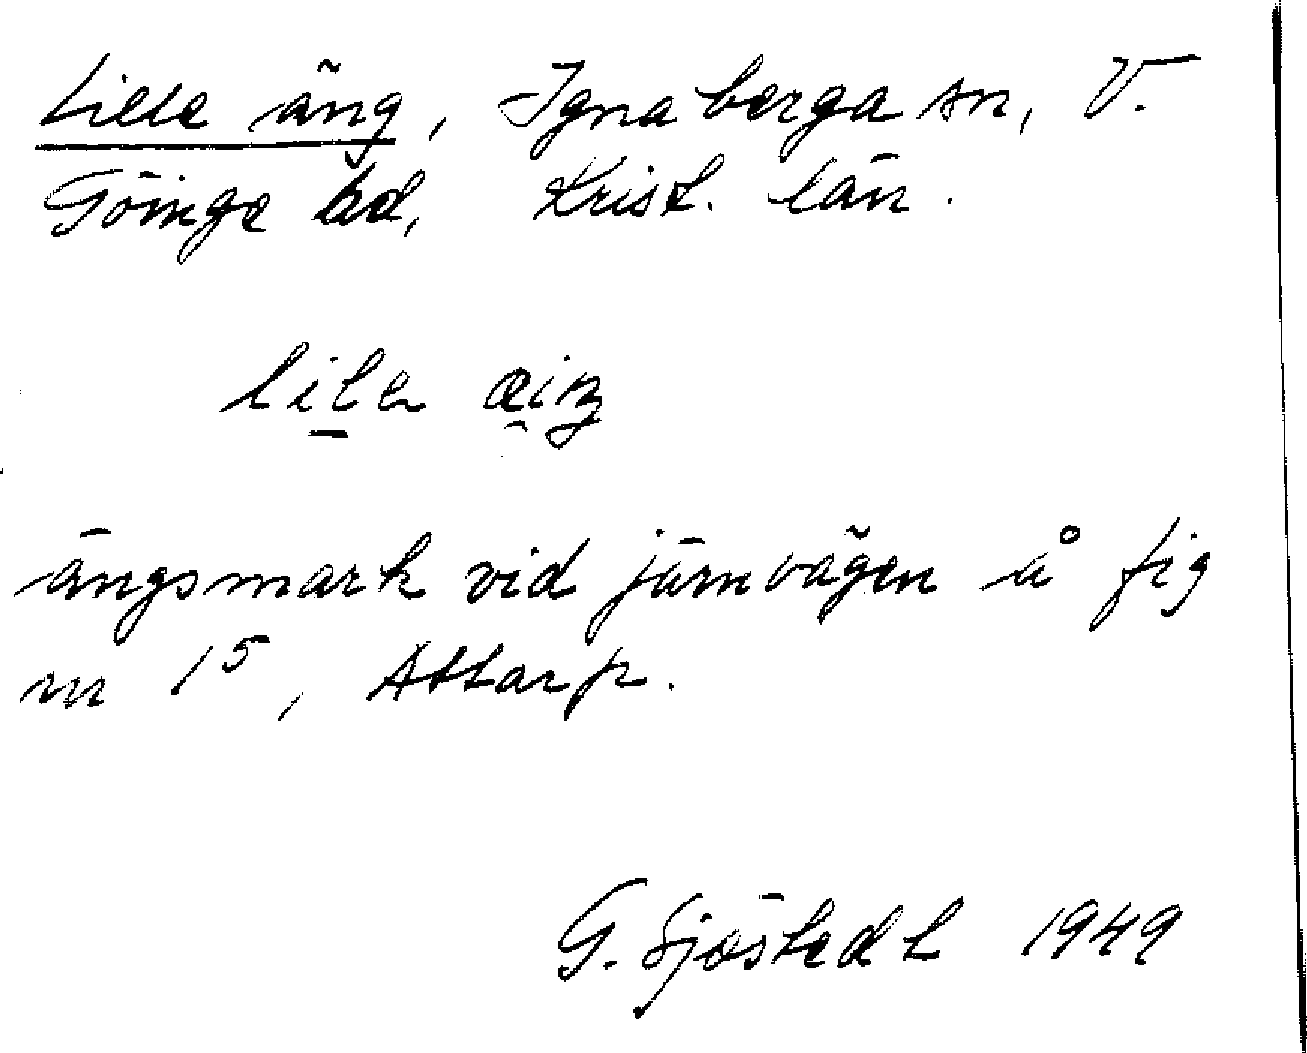 Lille äng, Ignaberga sn, V.
Göinge hd, Krist. län.
ängsmark vid järnvägen å fig
nr 15, Attarp.
G. Sjöstedt 1949